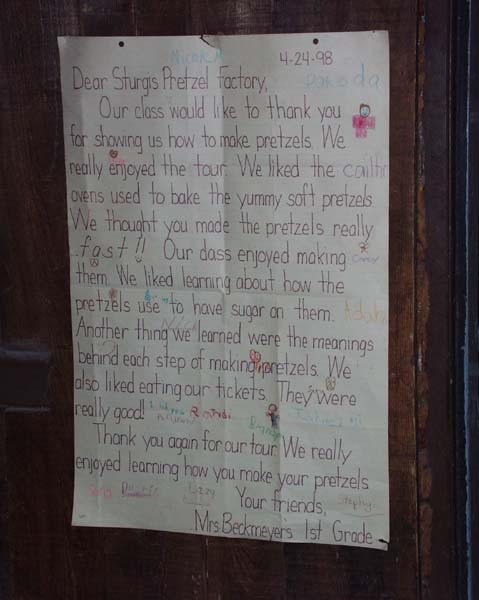 Nicole M 4-24-98
Dear Sturgis Pretzel Factory, Dakoda
Our class would like to thank you
for showing us how to make pretzels. We
really enjoyed the tour. We liked the caitlin
ovens used to bake the yummy soft pretzels.
We thought you made the pretzels really
..fast!! Our class enjoyed making
them. We liked learning about how the
pretzels use to have sugar on them. Adah
Another thing we learned were the meanings
behind each step of making pretzels. We
also liked eating our tickets. They were
really good!
Thank you again for our tour. We really
enjoyed learning how you make your pretzels.
Lizzy Your friends,
Mrs. Beckmeyer's 1st Grade